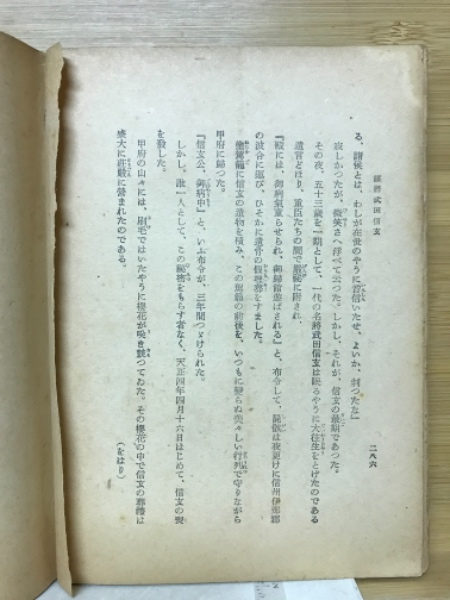 猛将武田信玄
二八六
る、諸侯とは、わしが在世のやうに音信いたせ、よいか、判つたな」
寂しかつたが、微笑さへ浮べて云つた。しかし、それが、信玄の最期であつた。
その夜、五十三歳を一期として、一代の名将武田信玄は眠るやうに大往生をとげたのである
遺言どほり、重臣たちの間で厳秘に附され、
『戦には、御病気重らせられ、御帰館遊ばされる』と、布令して、屍骸は夜更けに信州伊那郡
の波合に運び、ひそかに遺骨の仮埋葬をすました。
塗駕籠に信玄の遺物を積み、この駕籠の前後を、いつもに変らぬ美々しい行列で守りながら
甲府に帰つた。
『信玄公、御病中』と、いふ布令が、三年間つゞけられた。
しかし、誰一人として、この秘密をもらす者なく、天正四年四月十六日はじめて、信玄の喪
を発した。
甲府の山々には、刷毛ではいたやうに桜花が咲き競つてゐた。その桜花の中で信玄の葬儀は
盛大に荘厳に営まれたのである。
(をはり)